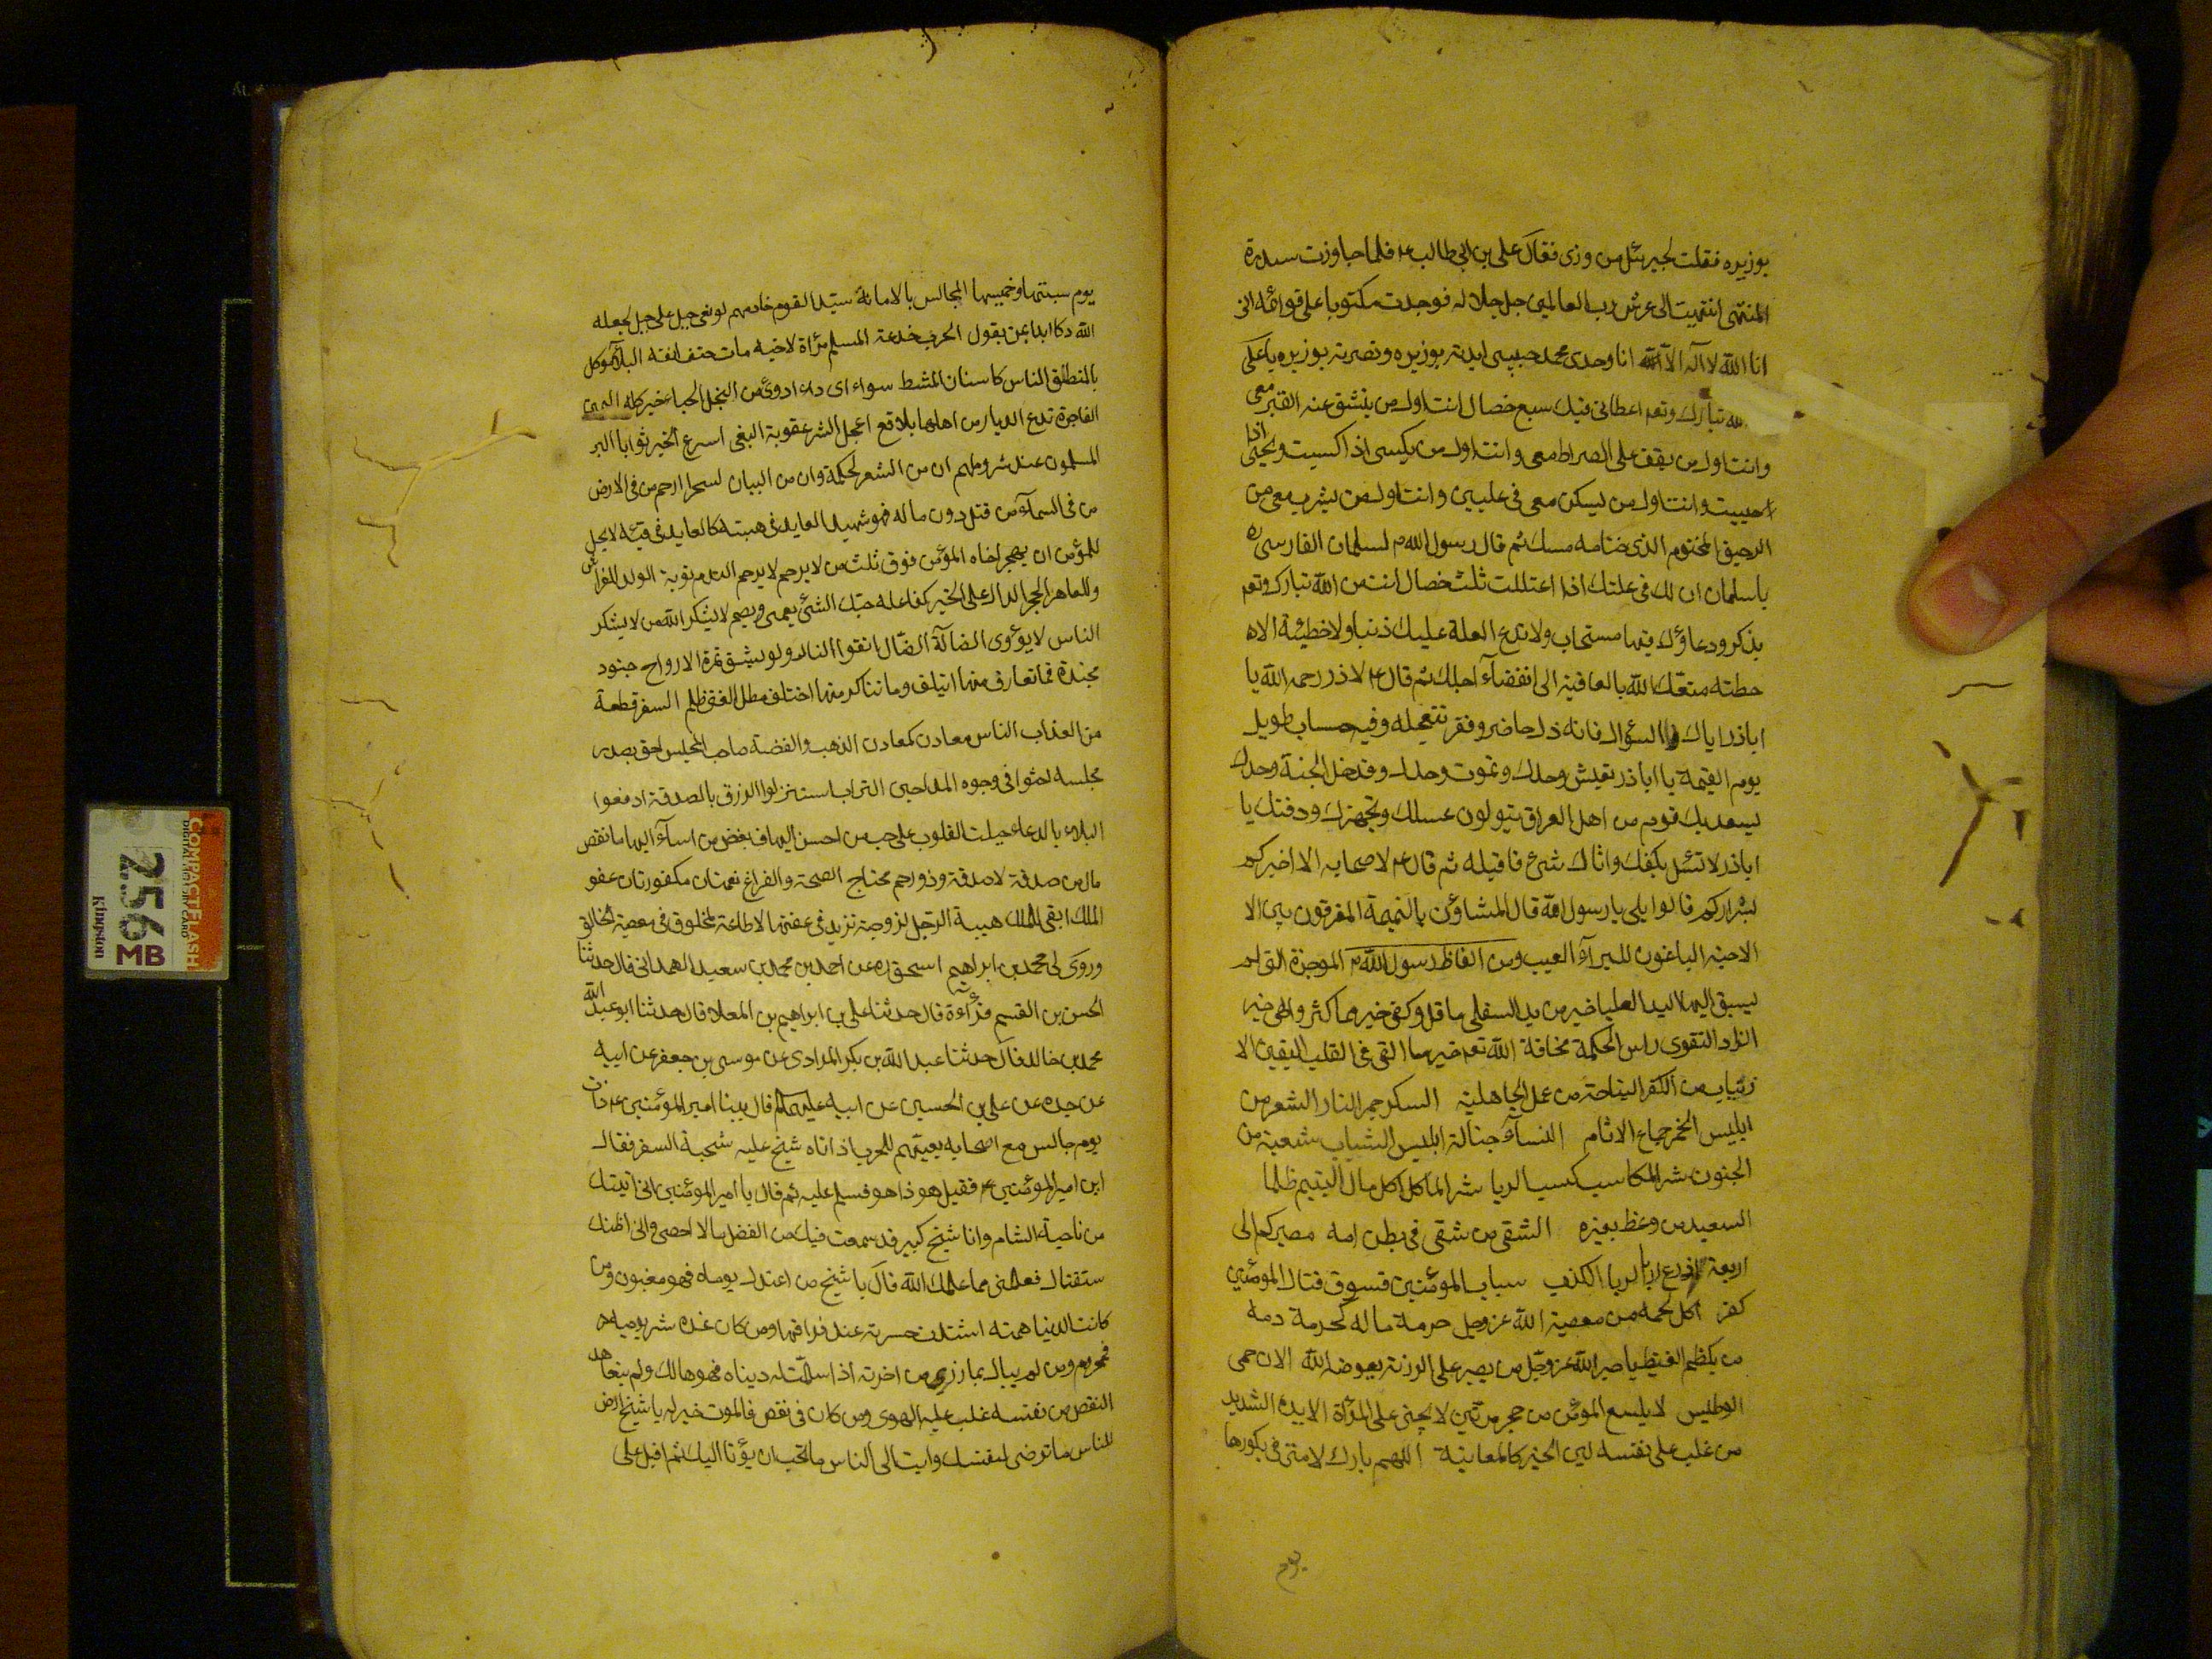 بوزيره فقلت لجبرئيل من وزيرى فقال على بن ابى طالب ع فلما جاوزت سدرة
المنتهى انتهيت الى عرش رب العالمين جل جلاله فوجدت مكتوبا على قوائمه انى
انا الله لا اله الا انا وحدى محمد حبيبى ايدته بوزيره ونصرته بوزيره يا على
الله تبارك وتعه اعطانى فيك سبع خصال انت اول من ينشق عنه القبر معى
وانت اول من يقف على الصراط معى وانت اول من يكسى اذا كسيت ويحيى اذا
حييت وانت اول من يسكن معى فى عليين وانت اول من يشرب معى من
الرحيق المختوم الذى ختامه مسك ثم قال رسول الله ص لسلمان الفارسى ره
يا سلمان ان لك فى علتك اذا اعتللت ثلث خصال انت من الله تبارك وتعه
بذكر ودعاؤك فيها مستجاب ولا تدع العلة عليك ذنبا ولا خطيئة الا
حطته متعك الله بالعافية الى انقضاء اجلك ثم قال ع لابى ذر رحمه الله يا
اباذر اياك والسؤال فانه ذل حاضر وفقر تتعجله وفيه حساب طويل
يوم القيمة يا اباذر تعيش وحدك وتموت وحدك وتدخل الجنة وحدك
يسعد بك قوم من اهل العراق يتولون غسلك وتجهيزك ودفنك يا
اباذر لا تسئل بكفك وان اتاك شئ فاقبله ثم قال ع لاصحابه الا اخبركم
بشراركم قالوا بلى يا رسول الله قال المشاؤن بالنميمة المفرقون بين الا
الاحبة الباغون للبرآء العيب ومن الفاظ رسول الله ص الموجزة التى لم
يسبق اليها اليد العليا خير من يد السفلى ما قل وكفى خير مما كثر والهى خير
الزاد التقوى راس الحكمة مخافة الله تعه خير ما القى فى القلب اليقين الا
رتياب من الكفر النياحة من عمل الجاهلية السكر جمر النار الشعر من
ابليس الخمر جماع الاثام النسآء حبالة ابليس الشباب شعبة من
الجنون شر المكاسب كسب الربا شر المآكل اكل مال اليتيم ظلما
السعيد من وعظ بغيره الشقى من شقى فى بطن امه مصيركم الى
اربعة اذرع اربا الربا الكذب سباب المؤمنين فسوق قتال المؤمنين
كفر اكل لحمه من معصية الله عز وجل حرمة ماله كحرمة دمه
من يكظم الغيظ ياجره الله عز وجل من يصبر على الرزية يعوضه الله الان حمى
الوطيس لا يلسع المؤمن من جحر مرتين لا يجنى على المرأة الا يده الشديد
من غلب على نفسه ليس الخبر كالمعاينة اللهم بارك لامتى فى بكورها
يوم
يوم سبتها وخميسها المجالس بالامانة سيد القوم خادمهم لو بغى جبل على جبل لجعله
الله دكا ابدا بمن يقول الحرب خدعة المسلم مرآة لاخيه مات حتف انفه البلآء موكل
بالمنطق الناس كاسنان المشط سواء اى داء ادوى من البخل الحياء خير كله اليمين
الفاجرة تدع الديار من اهلها بلاقع اعجل الشر عقوبة البغى اسرع الخير ثوابا البر
المسلمون عند شروطهم ان من الشعر لحكمة وان من البيان لسحرا ارحم من فى الارض
من فى السمآء من قتل دون ماله فهو شهيد العايد فى هبته كالعايد فى قيئه لا يحل
للمؤمن ان يهجر اخاه المؤمن فوق ثلث من لا يرحم لا يرحم الندم توبة الولد للفراش
وللعاهر الحجر الدال على الخير كفاعله حبك الشئ يعمى ويصم لا يشكر الله من لا يشكر
الناس لا يؤوى الضالة الا الضال اتقوا النار ولو بشق تمرة الارواح جنود
مجندة فما تعارف منها ايتلف وما تناكر منها اختلف مطل الغنى ظلم السفر قطعة
من العذاب الناس معادن كمعادن الذهب والفضة صاحب المجلس احق بصدر
مجلسه احثوا فى وجوه المداحين التراب استنزلوا الرزق بالصدقة ادفعوا
البلاء بالدعاء جبلت القلوب على حب من احسن اليها وبغض من اسآء اليها ما نقص
مال من صدقة لا صدقة وذو رحم محتاج الصحة والفراغ نعمتان مكفورتان عفو
الملك ابقى للملك هيبة الرجل لزوجته تزيد فى عفتها لا طاعة لمخلوق فى معصية الخالق
وروى لى محمد بن ابراهيم اسحق ره عن احمد بن محمد بن سعيد الهمدانى قال حدثنا
الحسن بن القسم قرآءة قال حدثنا على بن ابراهيم بن المعلا قال حدثنا ابو عبد الله
محمد بن خالد قال حدثنا عبد الله بن بكر المرادى عن موسى بن جعفر عن ابيه
عن جده عن على بن الحسين عن ابيه عليهم السلام قال بينا امير المؤمنين ع ذات
يوم جالس مع اصحابه يعبيهم للحرب اذ اتاه شيخ عليه شحبة السفر فقال
اين امير المؤمنين ع فقيل هو ذا هو فسلم عليه ثم قال يا امير المؤمنين انى اتيتك
من ناحية الشام وانا شيخ كبير قد سمعت فيك من الفضل ما لا احصى وانى اظنك
ستقتال فعلمنى مما علمك الله قال يا شيخ من اعتدل يوماه فهو مغبون ومن
كانت الدنيا همته اشتدت حسرته عند فراقها ومن كان غده شر يوميه
فمحروم ومن لم يبال بما زرى من اخرته اذا سلمت له دنياه فهو هالك ولم يتعاهد
النقص من نفسه غلب عليه الهوى ومن كان فى نقص فالموت خير له يا شيخ ارض
للناس ما ترضى لنفسك وايت الى الناس ما تحب ان يؤتا اليك ثم اقبل على
COMPACTFLASH
DIGITAL MEMORY CARD
256
MB
Kingston